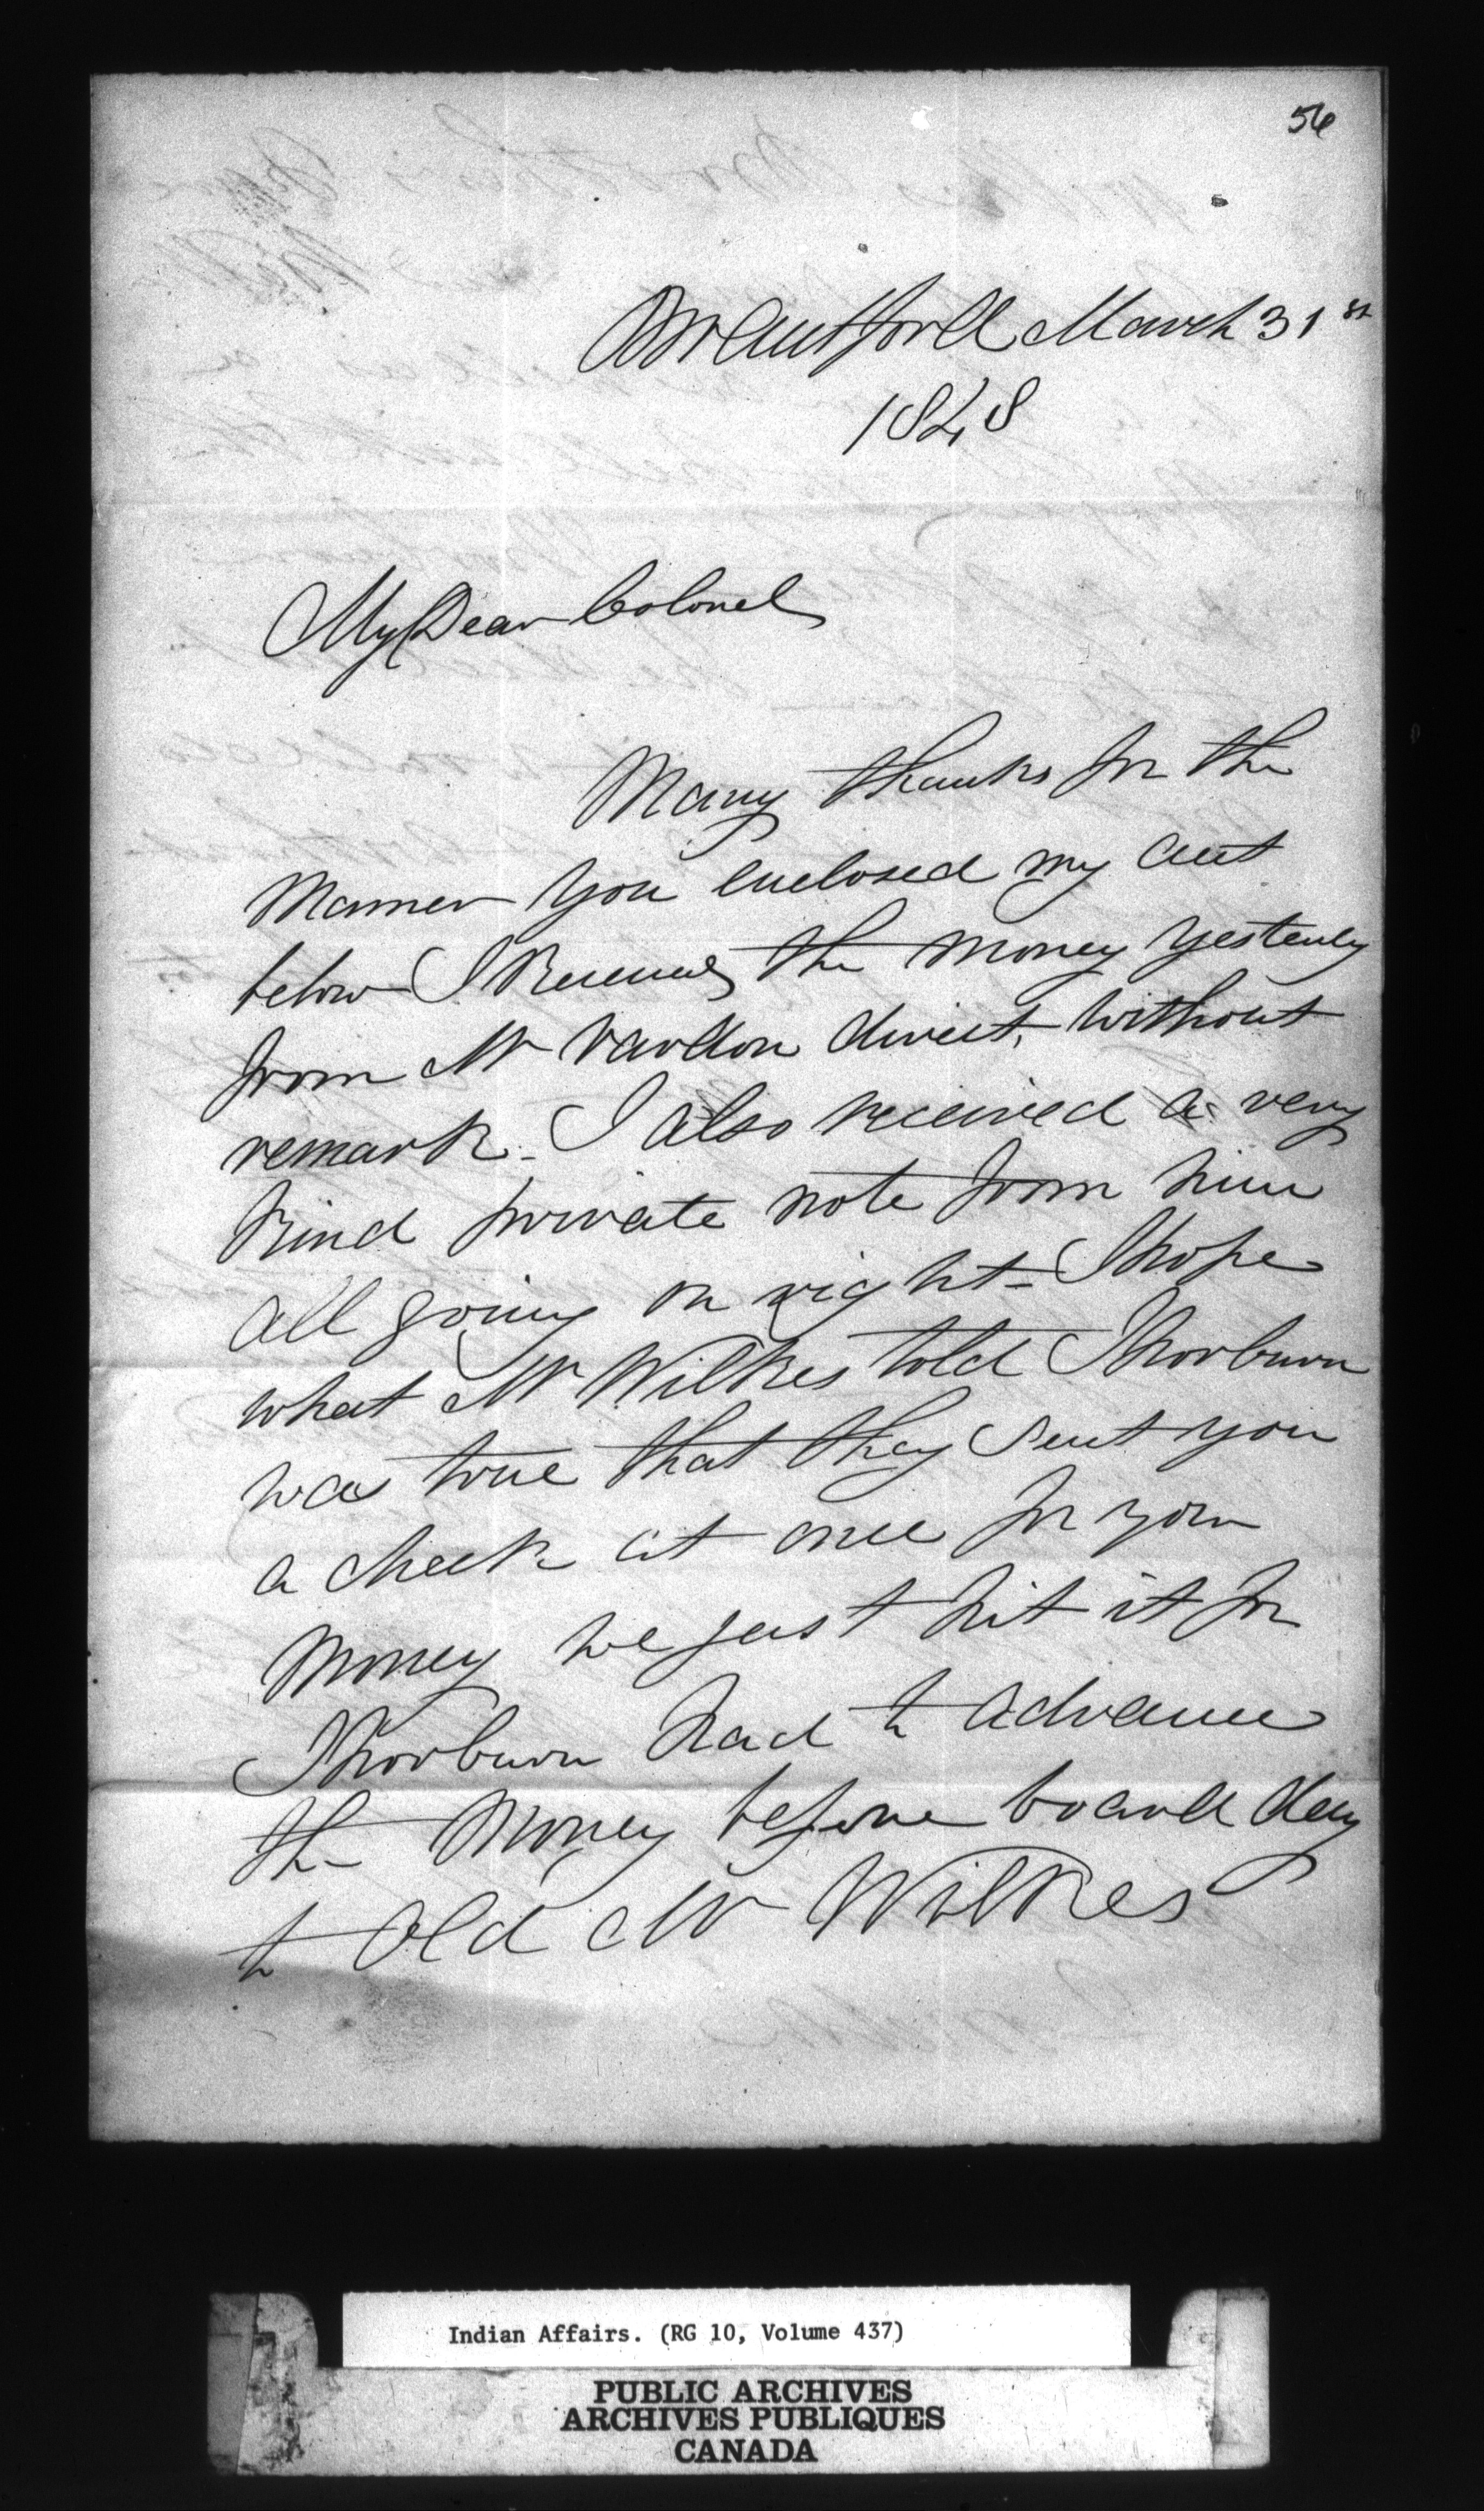 56
Brantford March 31st
1848
My Dear Colonel
Many thanks for the
Manner you enclosed my acct
below I Received the money yesterday
from Mr Vardon direct, without
remark - I also received a very
kind private note from him
all going on right - I hope
what Mr Wilkes told Thorburn
was true that they sent you
a check at once for your
money we just hit it for
Thorburn had to advance
the money before board day
to Old Mr Wilkes
Indian Affairs. (RG 10, Volume 437)
PUBLIC ARCHIVES
ARCHIVES PUBLIQUES
CANADA